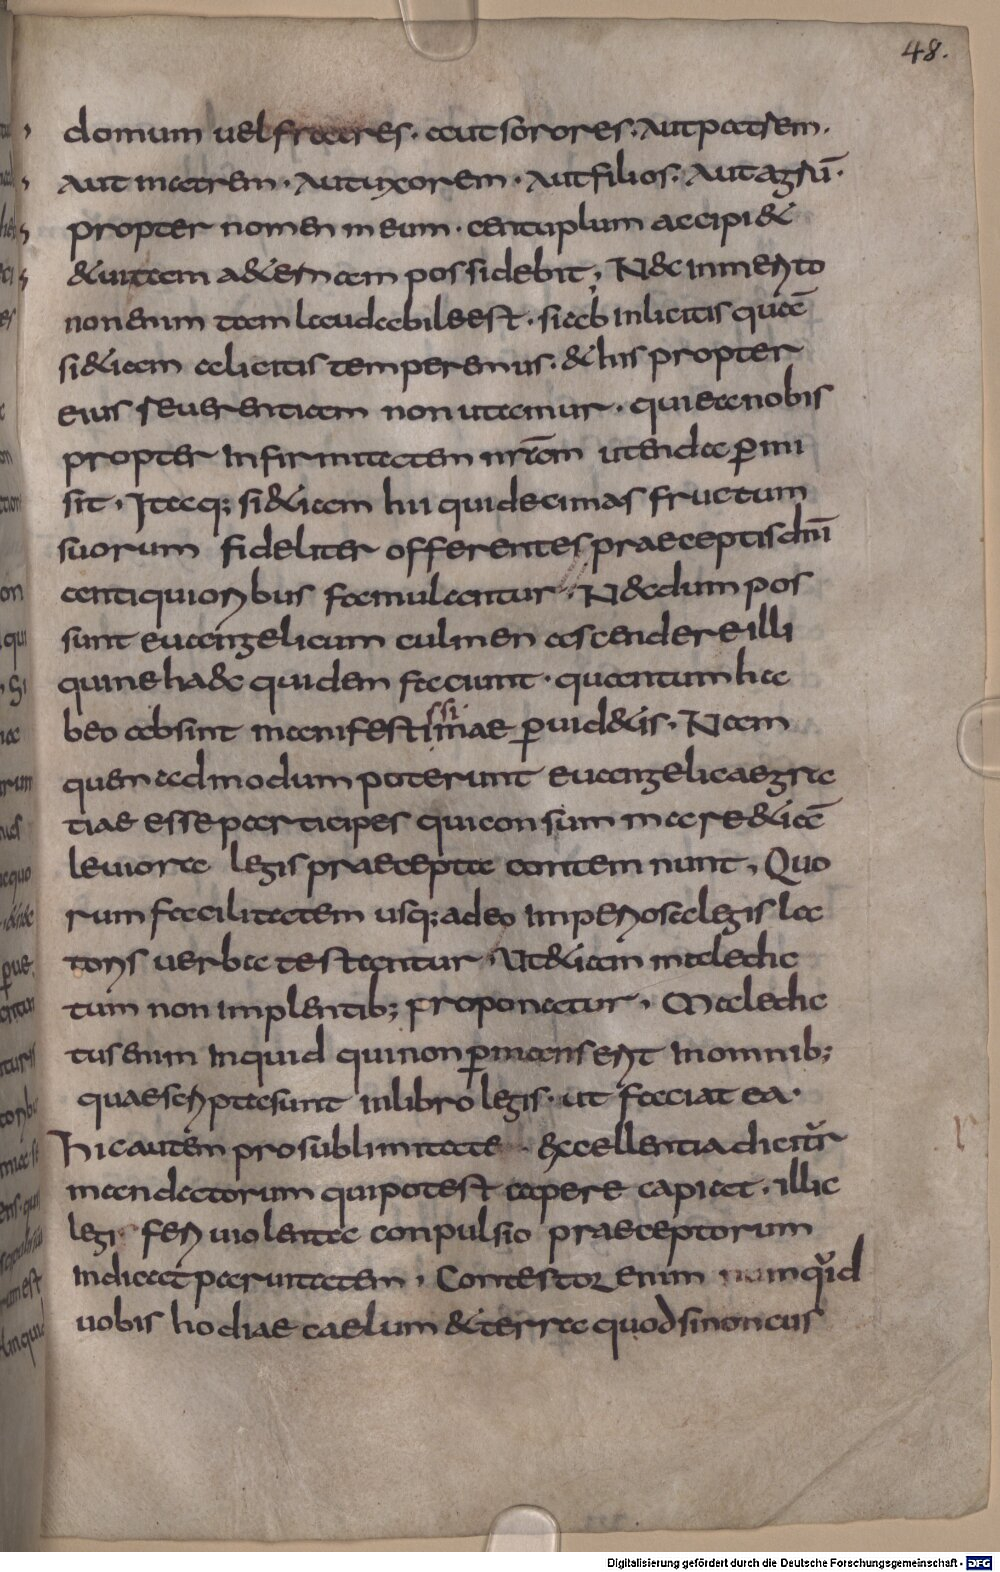 48.
domum uel fratres. aut sorores. Aut patrem.
Aut matrem. Aut uxorem. Aut filios. Aut agrū.
propter nomen meum. centuplum accipi&
&uitam a&ernam possidebit, Nec inmerito
non enim tam laudabile est. si ab inlicitis quā
si &iam a licitis temperemus. & his propter
eius reuerentiam non utamur. qui ea nobis
propter infirmitatem nr̄am utenda ꝑmi
sit. Itaq; si &iam hii qui decimas fructum
suorum fideliter offerentes praeceptis dn̄i
antiquioribus famulantur. Necdum pos
sunt euangelicum culmen ascendere illi
qui ne haec quidem faciunt. quantum ha
beo absint manifestissimae ꝑuid&is. Nam
quemadmodum poterunt euangelicae gra
tiae esse participes qui consummare &iā
leuiora legis praecepta contemnunt, Quo
rum facilitatem usq; adeo imperiosa legis la
toris uerba testantur. Ut &iam maledic
tum non implentib; proponatur, Maledic
tus enim inquid qui non ꝑmanserit in omnib;
quae scripta sunt in libro legis. ut faciat ea.
hic autem pro sublimitate &excellentia dicitur
mandatorum qui potest capere capiat. illic
legis feri uiolenta conpulsio praeceptorum
indicat paruitatem, Contestor enim inquid
uobis hodiae caelum & terra quod si non cus
Digitalisierung gefördert durch die Deutsche Forschungsgemeinschaft - DFG